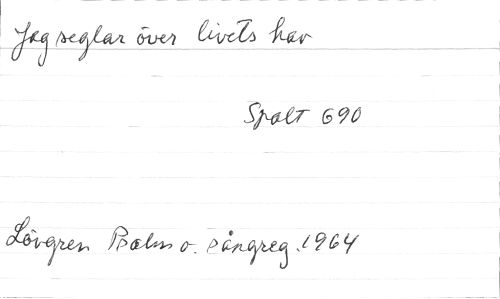 Jag seglar över livets hav
Spalt 690
Lövgren Psalm o. sångreg. 1964